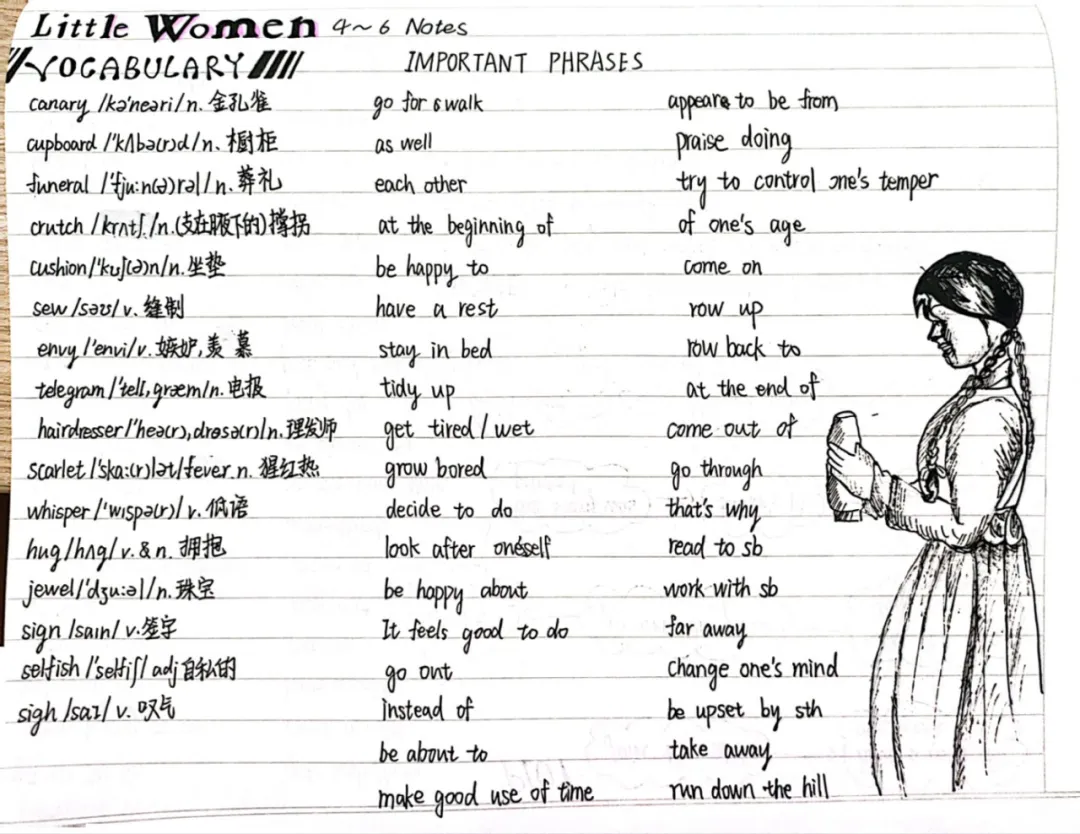 Little Women 4~6 Notes
VOCABULARY
canary /kə'neəri/n. 金孔雀
cupboard /'kʌbə(r)d/n. 橱柜
funeral /'fju:n(ə)rəl/n. 葬礼
crutch /krʌtʃ/n.(支在腋下的)撑拐
cushion/'kuʃ(ə)n/n.坐垫
sew /səʊ/ v. 缝制
envy /'envi/v. 嫉妒,羡慕
telegram /'telɪ,græm/n.电报
hairdresser/'heə(r),dresə(r)/n.理发师
scarlet /'ska:(r)lət/fever n. 猩红热
whisper /'wɪspə(r)/ v. 低语
hug /hʌg/ v. & n. 拥抱
jewel/'dʒu:əl/n.珠宝
sign /saɪn/ v.签字
selfish /'selfiʃ/ adj自私的
sigh /saɪ/ v. 叹气
IMPORTANT PHRASES
go for a walk
as well
each other
at the beginning of
be happy to
have a rest
stay in bed
tidy up
get tired/wet
grow bored
decide to do
look after oneself
be happy about
It feels good to do
go out
instead of
be about to
make good use of time
appear to be from
praise doing
try to control one's temper
of one's age
come on
row up
row back to
at the end of
come out of
go through
that's why
read to sb
work with sb
far away
change one's mind
be upset by sth
take away
run down the hill